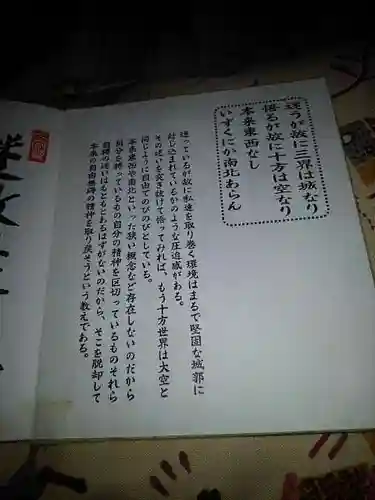 迷うが故に三界は城なり
悟るが故に十方は空なり
本来東西なし
いずくにか南北あらん
迷っているが故に私達を取り巻く環境はまるで堅固な城郭に
封じ込まれているかのような圧迫感がある。
その迷いを突き抜けて悟ってみれば、もう十方世界は大空と
同じように自由でのびのびとしている。
本来東西や南北といった狭い概念など存在しないのだから
自分を縛っているもの自分の精神を区切っているものそれら
自縛の迷いはもともとあるはずがないのだから、そこを脱却して
本来の自由無碍の精神を取り戻そうという教えである。